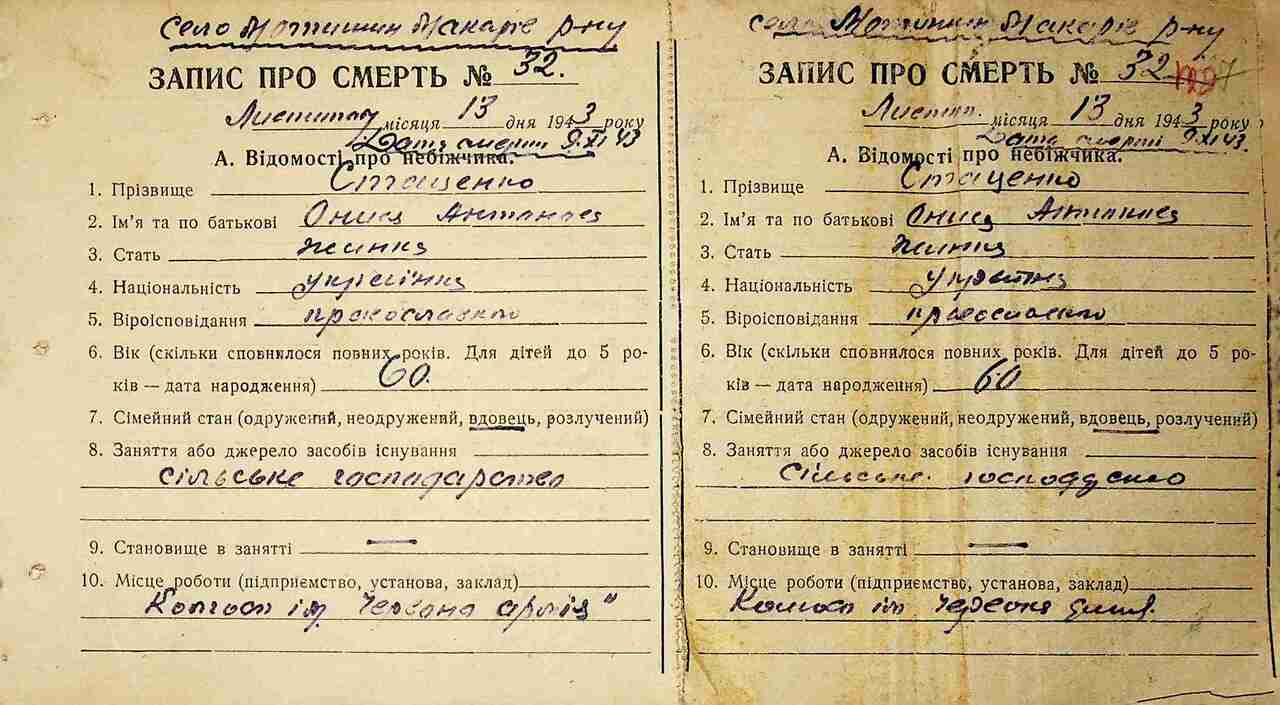 Село Мотижин Макарів р-ну
ЗАПИС ПРО СМЕРТЬ № 32.
Листопад місяця 13 дня 1943 року
Дата смерти 9.XI 43
А. Відомості про небіжчика.
1. Прізвище Стаценко
2. Ім’я та по батькові Онися Антонівна
3. Стать жинка
4. Національність українка
5. Віроісповідання православна
6. Вік (скільки сповнилося повних років. Для дітей до 5 ро-
ків — дата народження) 60.
7. Сімейний стан (одружений, неодружений, вдовець, розлучений)
8. Заняття або джерело засобів існування
сільське господарство
9. Становище в занятті —
10. Місце роботи (підприємство, установа, заклад)
Колгосп ім. Червона армія"
Село Мотижин Макарів р-ну
ЗАПИС ПРО СМЕРТЬ № 32
Листоп. місяця 13 дня 1943 року
Дата смерти 9.XI 43.
А. Відомості про небіжчика.
1. Прізвище Стаценко
2. Ім’я та по батькові Онися
3. Стать жинка
4. Національність українка
5. Віроісповідання
6. Вік (скільки сповнилося повних років. Для дітей до 5 ро-
ків — дата народження) 60
7. Сімейний стан (одружений, неодружений, вдовець, розлучений)
8. Заняття або джерело засобів існування
сільське
9. Становище в занятті —
10. Місце роботи (підприємство, установа, заклад)
Колгосп ім. Червона